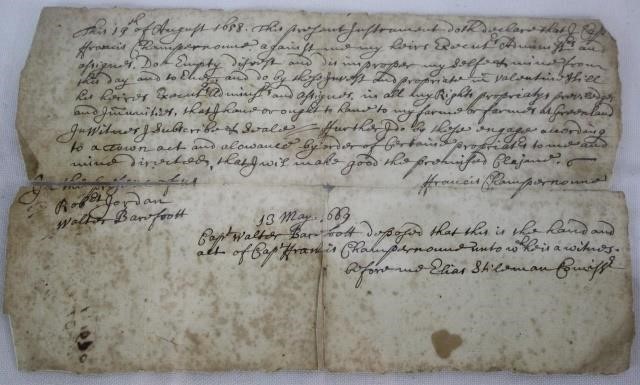 This 19th of August 1658. This present Instrument doth declare that I Capt
Francis Champernowne against me my heirs Execut Administs and
assignes, Doe Empty divest and disimproper my Selfe & mine from
this day and to Endure and do by these Invest and propriate in Valentine Hill
his heires Execut Adminisr and assignes, in all my Rights propriatys priviledges
and Immunities, that I have or ought to have to my farme or farmes at Greenland
In Witness I Subscribe & Seale Further I do by these engage according
to a town act and alowance by order of Certaine propriets to me and
mine directed, that I wil make good the premised
In the presence of us Francis Champernowne
Robet Jordan
Walter Barefoott
13 May. 669
Capt Walter Barefoott deposed that this is the hand and
act of Capt Francis Champernowne unto wch he is a witnes.
before me Elias Stileman Comissr